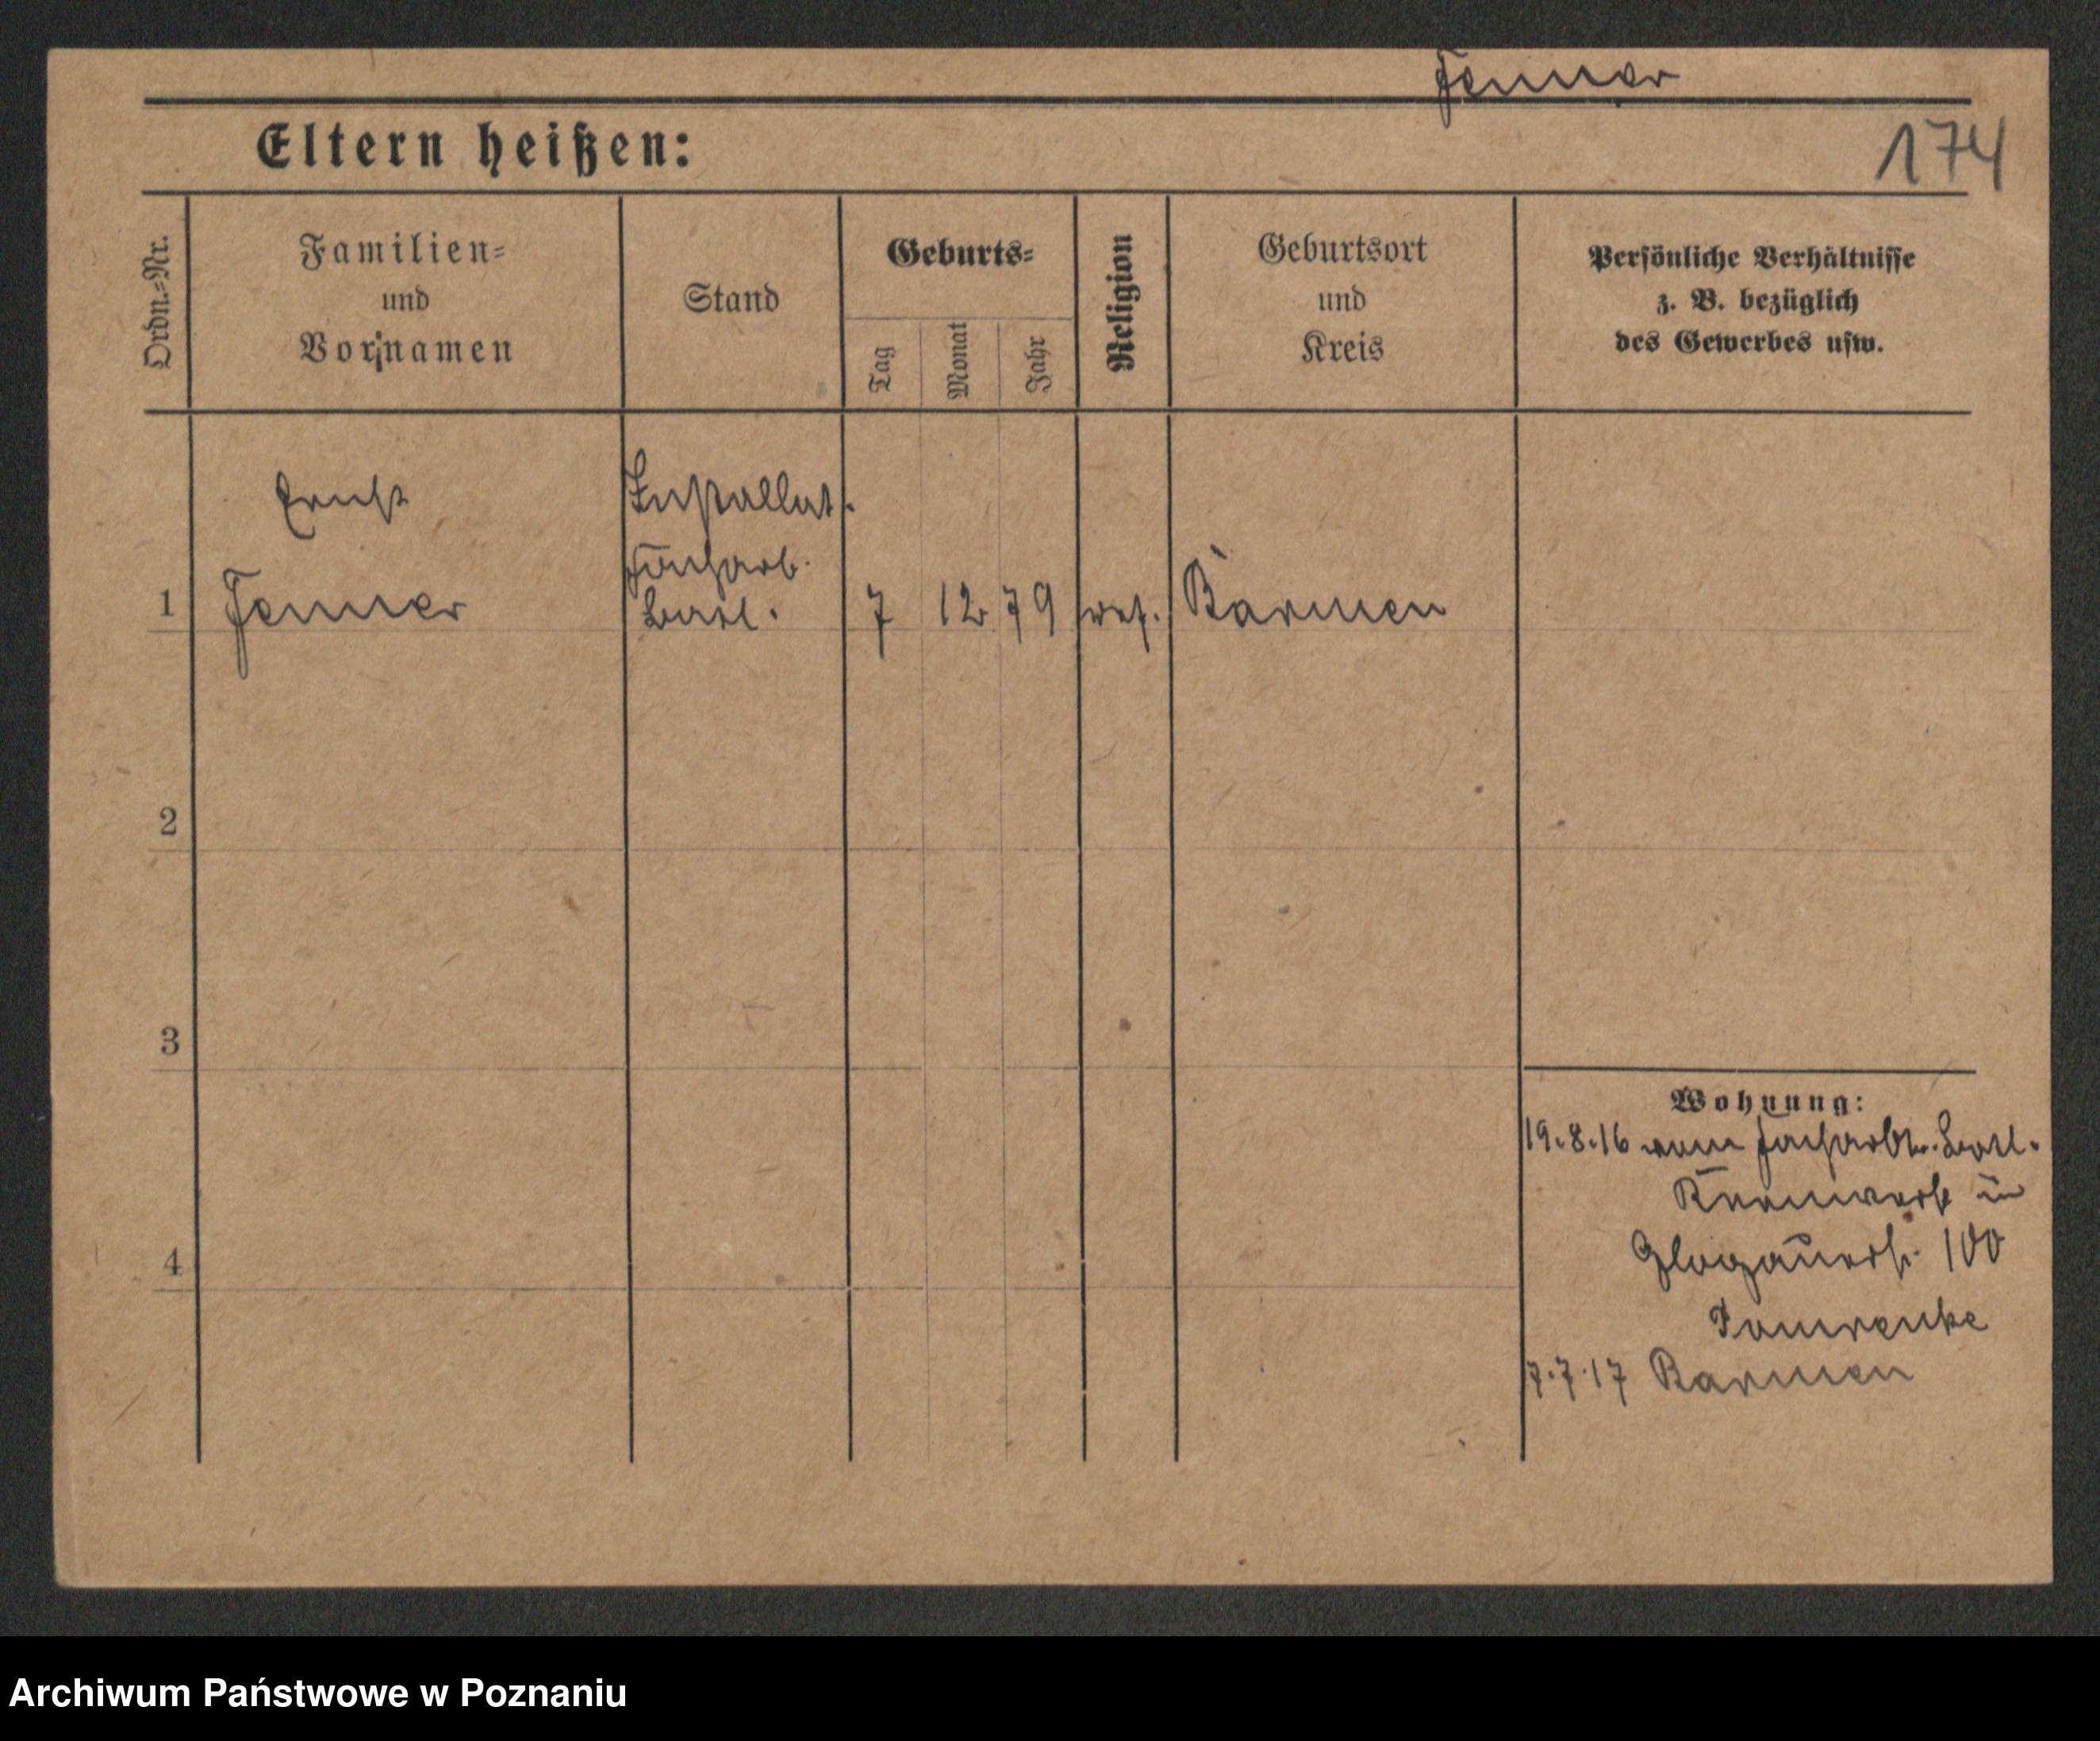 Jenner
174
Eltern heißen:
Ordn.-Nr.
Familien-
und
Vornamen
Stand
Geburts-
Tag
Monat
Jahr
Religion
Geburtsort
und
Kreis
Persönliche Verhältnisse
z. B. bezüglich
des Gewerbes usw.
Ernst
Installat.
1 Jenner
7 12 79 ref. Barmen
2
3
4
Wohnung:
19.8.16 vom
in
Glogauerstr. 100
7.7.17 Barmen
Archiwum Państwowe w Poznaniu